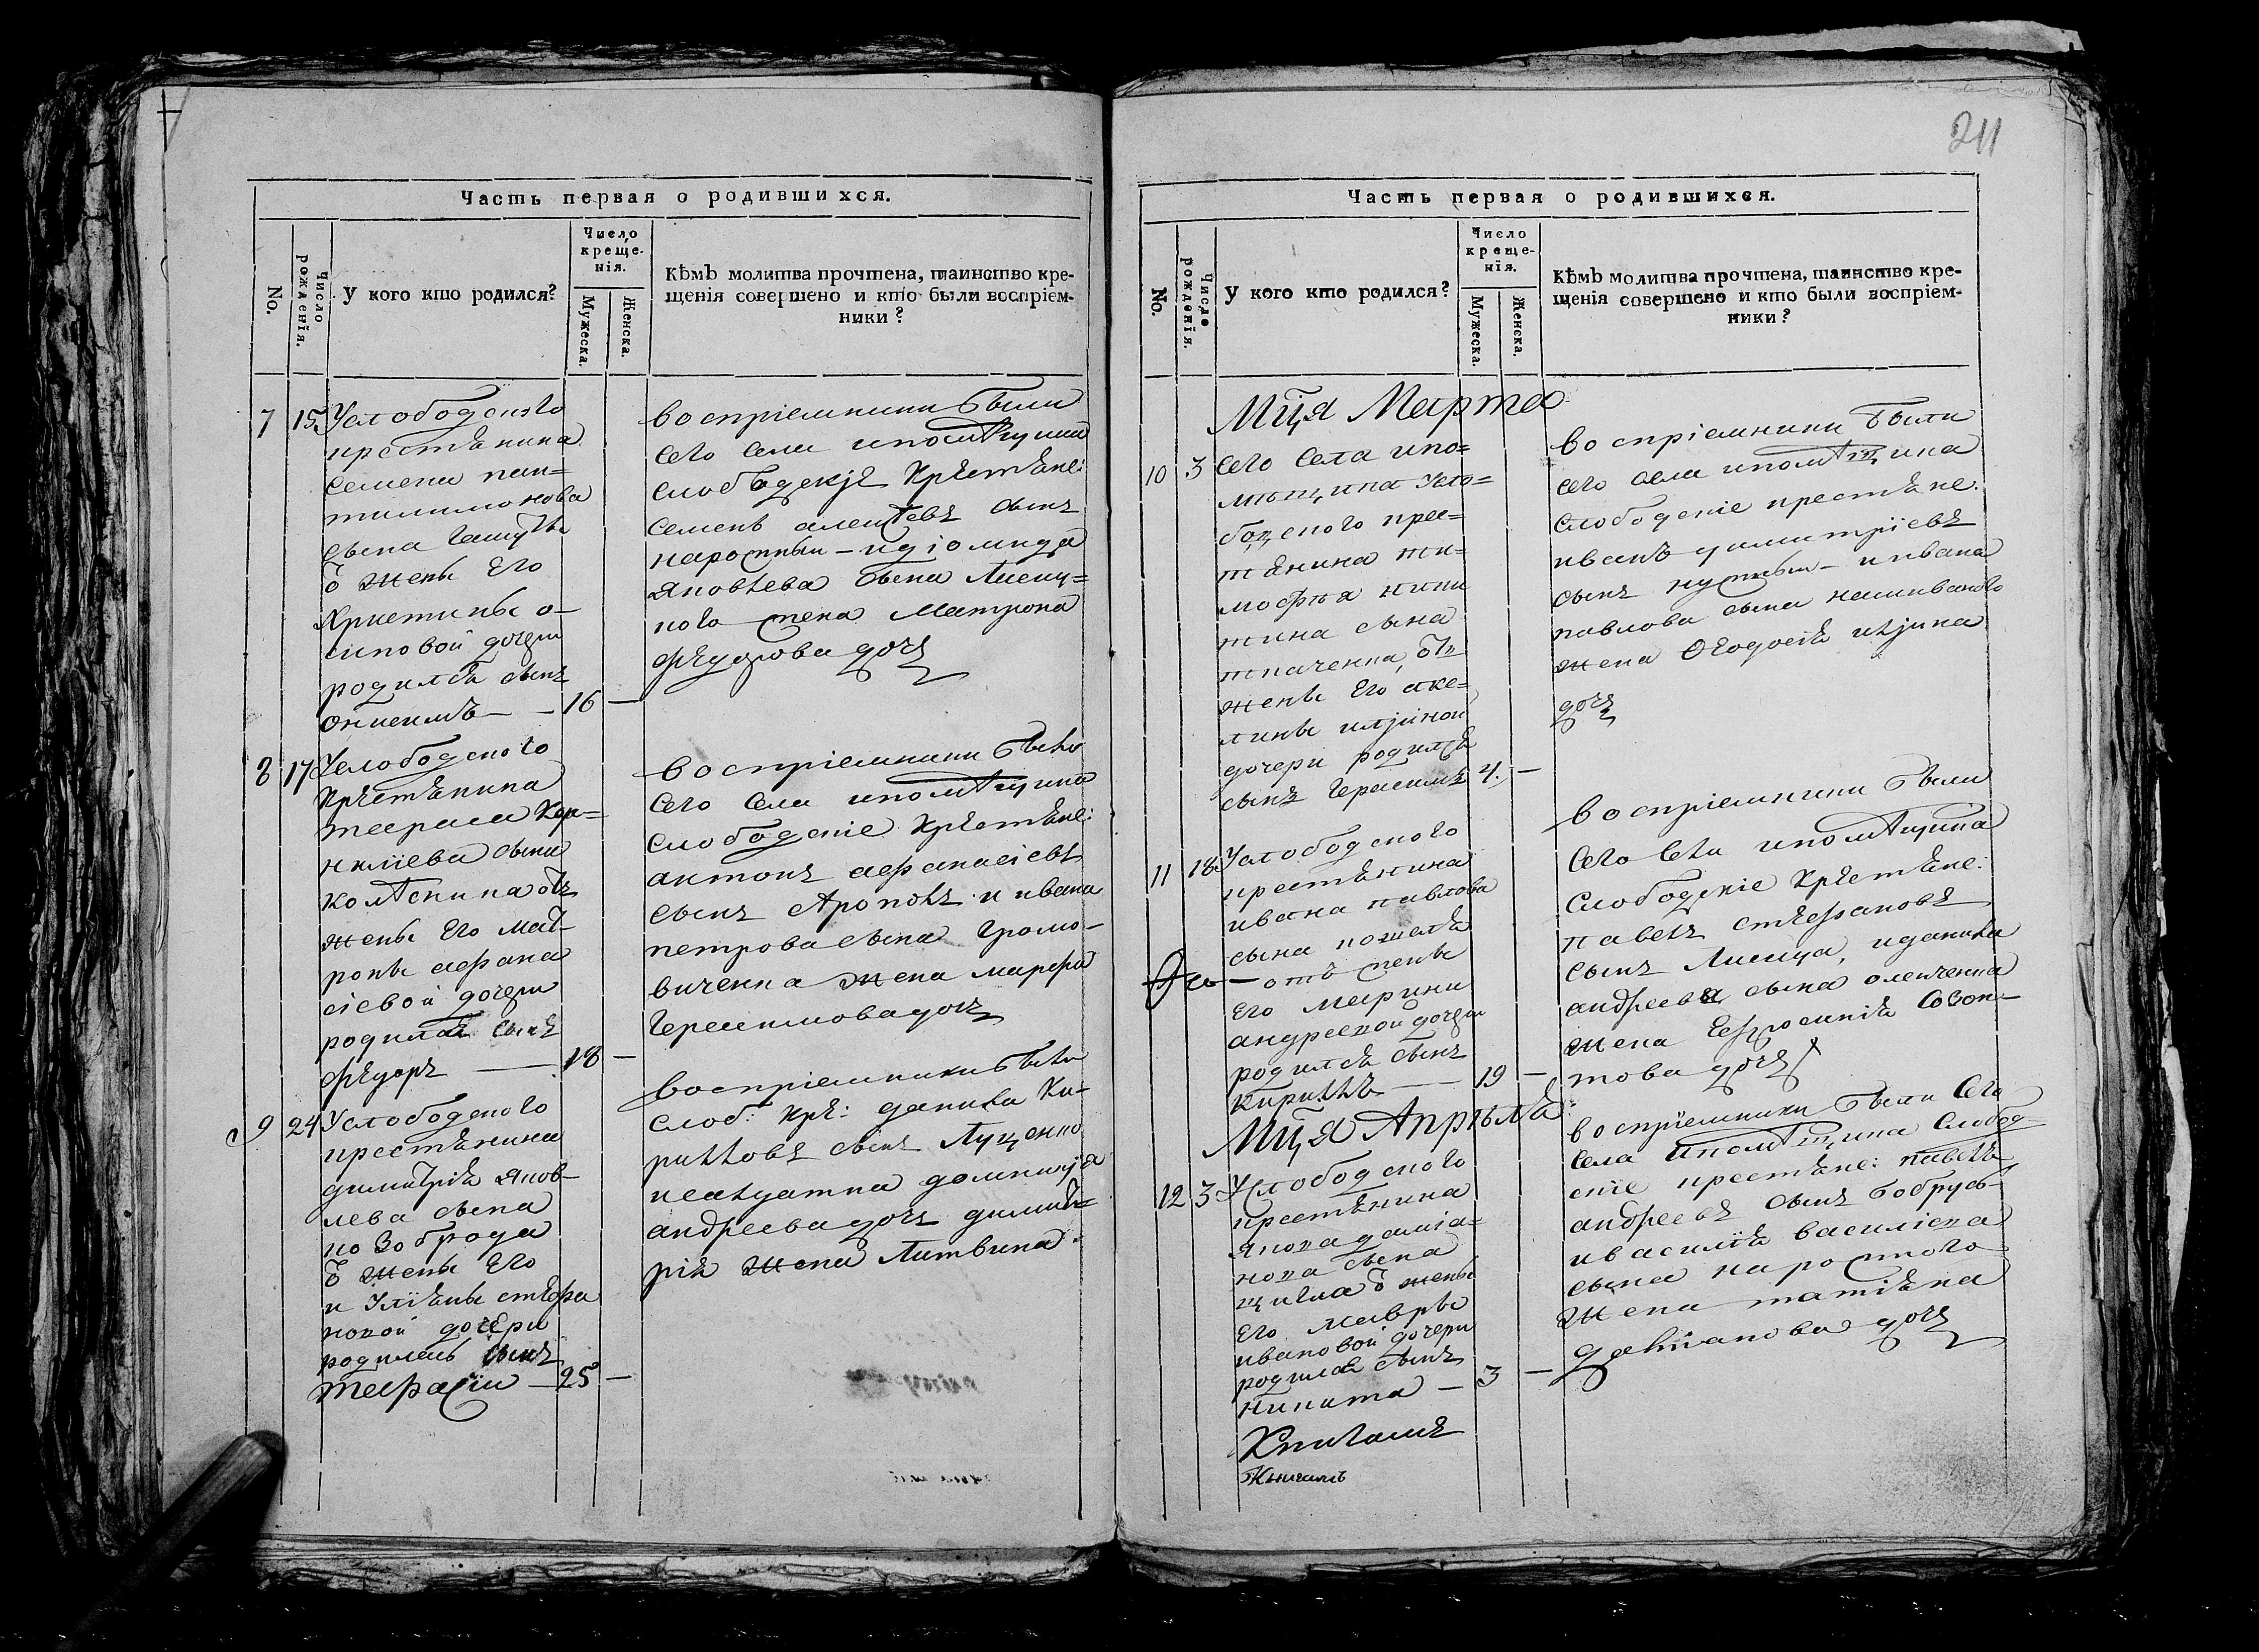 Часть первая о родившихся.
No.
Число рожденія.
У кого кто родился?
Число креще-
нія.
Мужеска.
Женска.
Кѣмъ молитва прочтена, таинство кре-
щенія совершено и кто были воспріем-
ники?
7 15 Услободского
крестѣнина
Семена пан-
тилимонова
сына
ѿ жены Его
Христины о-
сиповой дочери
родилсѧ сынъ
онисимъ — 16 —
воспріемники были
сего села и помѣщика
слободскіе Крестѣне:
Семенъ алексѣевъ сынъ
коростный — и діомида
Яковлева сына
кого жена Матрона
Фѣдорова дочь
8 17 Услободского
Крестѣнина
тараса Кор=
ниліева сына
колѣсника ѿ
жены Его мат-
роны афана
сіевой дочери
родилсѧ сынъ
Фѣдоръ — 18 —
воспріемники были
Сего Села и помѣщика
Слободскіе Крестѣне:
антонъ афанасіевъ
сынъ и ивана
петрова сына Громо-
виченка жена марфа
Герасимова дочь
9 24 Услободского
крестѣнина
димитріѧ Яков-
лева сына
ѿ жены Его
и Уліѣны стефа
новой дочери
родилсь сынъ
тарасій — 25 —
воспріемники были
слоб: крѣ: данила Ки-
рилловъ сынъ Луценко
андреева дочь димит=
ріѧ жена Литвина.
211
Часть первая о родившихся.
No.
Число рожденія.
У кого кто родился?
Число креще-
нія.
Мужеска.
Женска.
Кѣмъ молитва прочтена, таинство кре-
щенія совершено и кто были воспріем-
ники?
Мцѧ Марта
10 3 Сего Села и по=
мѣщика Усло=
бодского крес=
тѣнина ти=
мофѣя ники
тина сына
ткаченка, ѿ
жены Его аке=
лины иліиной
дочери родилсѧ
сынъ Герасимъ 4. —
воспріемники были
сего села и помѣщика
Слободскіе крестѣне:
иванъ димитріевъ
сынъ — и ивана
павлова сына
жена Ѳеодосіѧ
дочь
11 18 Услободского
крестѣнина
ивана павлова
сына
— отъ жены
Его Марины
андреевой дочери
родилсѧ сынъ
Кириллъ — 19 —
воспріемники были
Сего Села и помѣщика
Слободскіе Крестѣне:
павелъ стефановъ
сынъ Лисица, и данила
андреева сына олейченка
жена Ефросиніѧ Созон-
това дочь
Мцѧ Апрѣлѧ
12 3 Услободского
крестѣнина
Якова даміа=
нова сына
ѿ жены
Его Мавры
ивановой дочери
родилсѧ сынъ
Никита — 3 —
воспріемники были Сего
Села и помѣщика Слобод
скіе крестѣне: павелъ
андреевъ сынъ бобрусь-
и василіѧ василіева
сына коростного
жена татіѧна
даміанова дочь